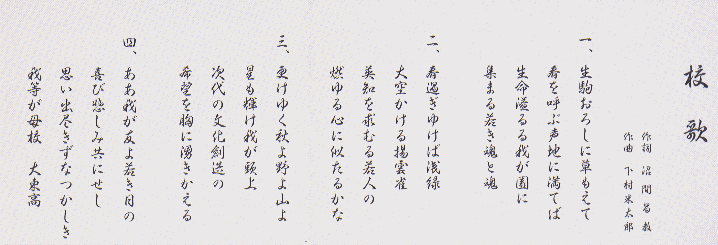 校歌
作詞 沼間昌教
作曲 下村米太郎
一、生駒おろしに草もえて
春を呼ぶ声地に満てば
生命溢るる我が園に
集まる若き魂と魂
二、春過ぎゆけば浅緑
大空かける揚雲雀
英知を求むる若人の
燃ゆる心に似たるかな
三、更けゆく秋よ野よ山よ
星も輝け我が頭上
次代の文化創造の
希望を胸に湧きかえる
四、ああ我が友よ若き日の
喜び悲しみ共にせし
思い出尽きずなつかしき
我等が母校 大東高